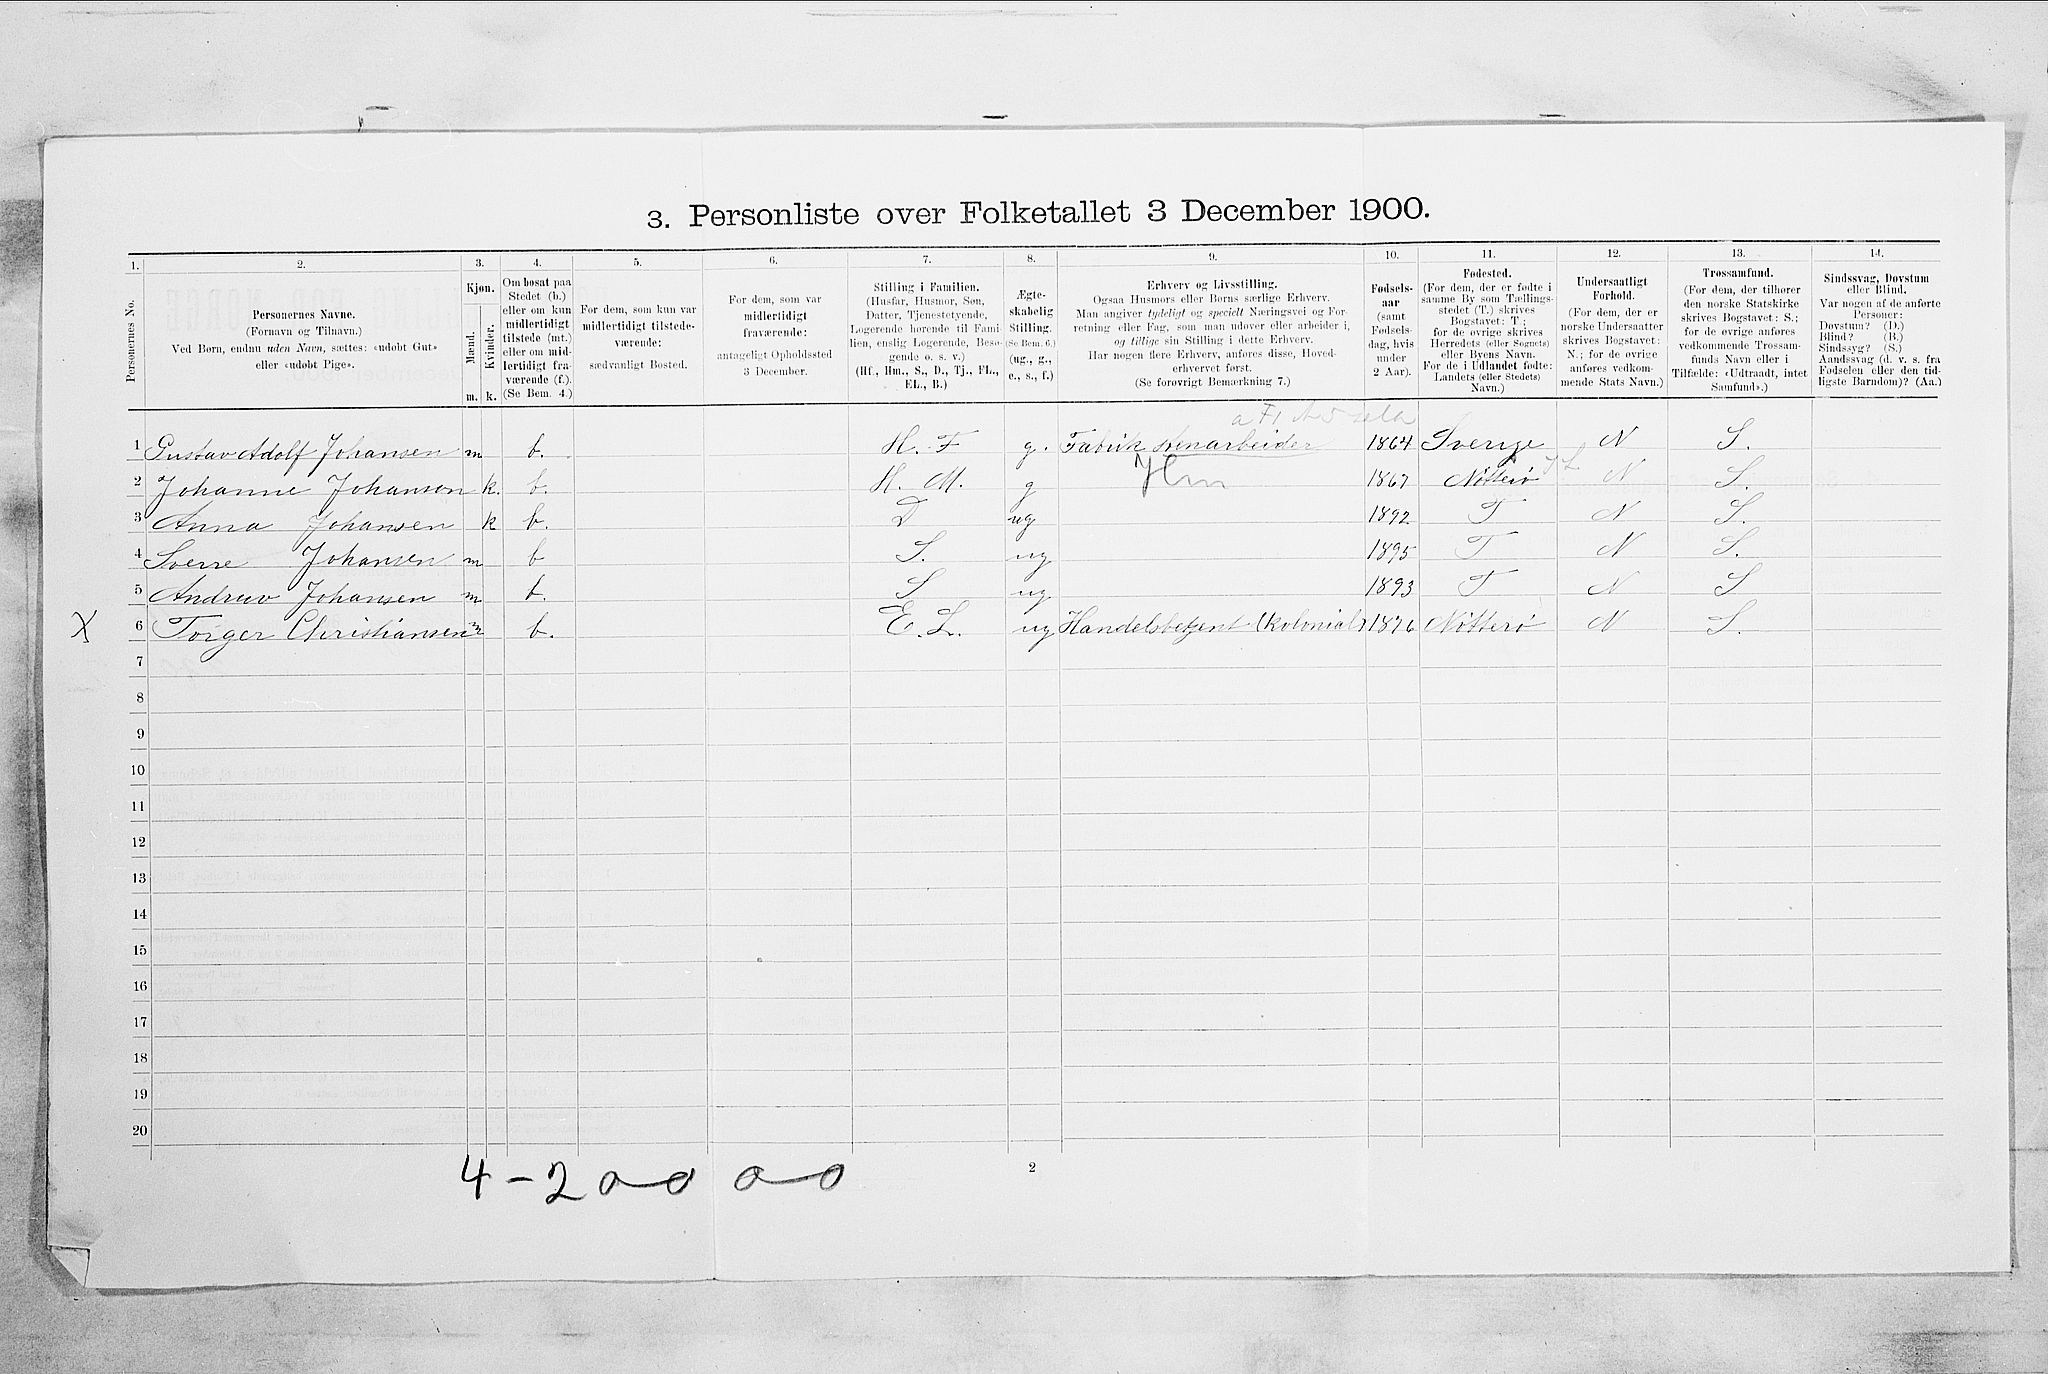 3. Personliste over Folketallet 3 December 1900.
1. 2. 3. 4. 5. 6. 7. 8. 9. 10. 11. 12. 13. 14.
Personernes No.
Personernes Navne.
(Fornavn og Tilnavn.)
Ved Børn, endnu uden Navn, sættes: «udøbt Gut»
eller «udøbt Pige».
Kjøn.
Mænd.
Kvinder.
m. k.
Om bosat paa
Stedet (b.)
eller om kun
midlertidigt
tilstede (mt.)
eller om mid-
lertidigt fra-
værende (f.).
(Se Bem. 4.)
For dem, som kun var
midlertidigt tilstede-
værende:
sædvanligt Bosted.
For dem, som var
midlertidigt
fraværende:
antageligt Opholdssted
3 December.
Stilling i Familien.
(Husfar, Husmor, Søn,
Datter, Tjenestetyende,
Logerende hørende til Fami-
lien, enslig Logerende, Besø-
gende o. s. v.)
(Hf., Hm., S., D., Tj., FL.,
EL., B.)
Ægte-
skabelig
Stilling.
(Se Bem. 6.)
(ug., g.,
e., s., f.)
Erhverv og Livsstilling.
Ogsaa Husmors eller Børns særlige Erhverv.
Man angiver tydeligt og specielt Næringsvei og For-
retning eller Fag, som man udøver eller arbeider i,
og tillige sin Stilling i dette Erhverv.
Har nogen flere Erhverv, anføres disse, Hoved-
erhvervet først.
(Se forøvrigt Bemærkning 7.)
Fødsels-
aar
(samt
Fødsels-
dag, hvis
under
2 Aar).
Fødested.
(For dem, der er fødte i
samme By som Tællings-
stedet (T.) skrives
Bogstavet: T.;
for de øvrige skrives
Herredets (eller Sognets)
eller Byens Navn.
For de i Udlandet fødte:
Landets (eller Stedets)
Navn.)
Undersaatligt
Forhold.
(For dem, der er
norske Undersaatter
skrives Bogstavet:
N.; for de øvrige
anføres vedkom-
mende Stats Navn.)
Trossamfund.
(For dem, der tilhører
den norske Statskirke
skrives Bogstavet: S.;
for de øvrige anføres
vedkommende Trossam-
funds Navn eller i
Tilfælde: «Udtraadt, intet
Samfund».)
Sindssvag, Døvstum
eller Blind.
Var nogen af de anførte
Personer:
Døvstum? (D.)
Blind? (B.)
Sindssyg? (S.)
Aandssvag (d. v. s. fra
Fødselen eller den tid-
ligste Barndom)? (Aa.)
1 Gustav Adolf Johansen m b. H. F g. Fabrik 1864 Sverige N S.
2 Johanne Johansen k. b. H. M. g Hm 1867 Nötterö N S.
3 Anna Johansen k b. D ug 1892 T N S.
4 Sverre Johansen m b S. ug 1895 T N S.
5 Johansen m b. S ug 1893 T N S
X 6 Torger Christiansen m b. E. L. ug Handelsbetjent (kolonial) 1876 Nötterö N S.
7
8
9
10
11
12
13
14
15
16
17
18
19
20
4 - 2 0 0 0 0
2